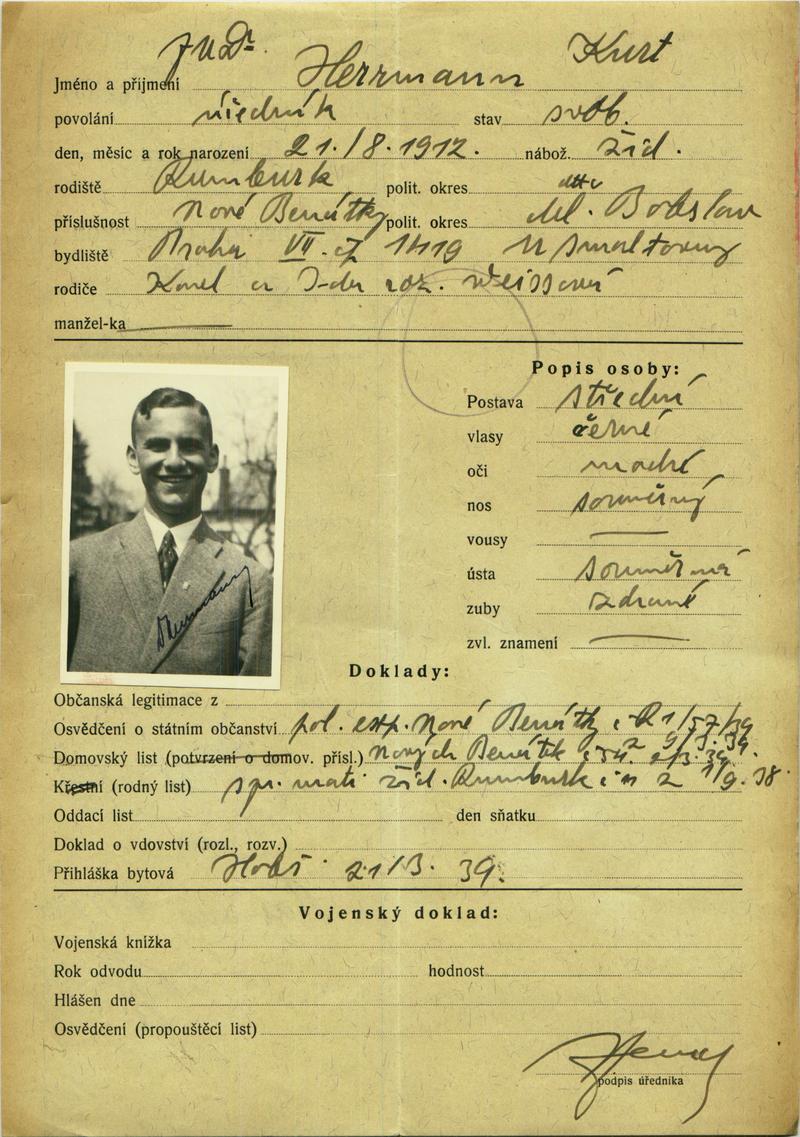 JUDr. Kurt
Jméno a příjmení Herrmann
povolání úředník stav svob.
den, měsíc a rok narození 21./8.1912. nábož. žid.
rodiště Rumburk polit. okres dtto
příslušnost Nové Benátky polit. okres Ml. Boleslav
bydliště Praha VII. čp 1419 U Smaltovny
rodiče Karel a Ida roz. Weissová
manžel-ka
Popis osoby:
Postava střední
vlasy černé
oči modré
nos souměrný
vousy
ústa souměrná
zuby zdravé
zvl. znamení
Doklady:
Občanská legitimace z
Osvědčení o státním občanství pol. exp. Nové Benátky č. R1/57/39
Domovský list (potvrzení o domov. přísl.) Nových Benátek
Křestní (rodný list) spr. matr. žid. Rumburk 1/9.38
Oddací list den sňatku
Doklad o vdovství (rozl., rozv.)
Přihláška bytová 21/3.39.
Vojenský doklad:
Vojenská knížka
Rok odvodu hodnost
Hlášen dne
Osvědčení (propouštěcí list)
podpis úředníka